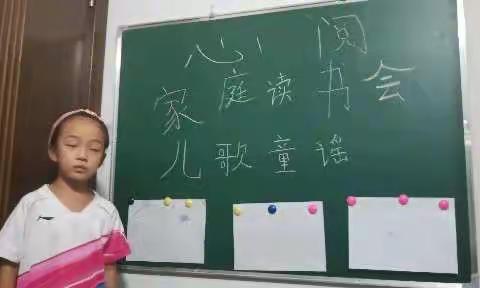 心 阅
家庭读书会
儿歌童谣